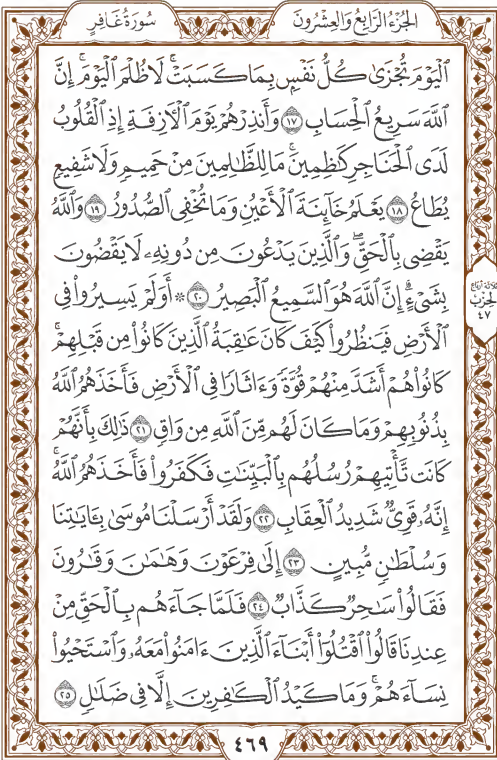 الجزء الرابع والعشرون
سورة غافر
ٱلۡيَوۡمَ تُجۡزَىٰ كُلُّ نَفۡسِۭ بِمَا كَسَبَتۡۚ لَا ظُلۡمَ ٱلۡيَوۡمَۚ إِنَّ
ٱللَّهَ سَرِيعُ ٱلۡحِسَابِ ١٧ وَأَنذِرۡهُمۡ يَوۡمَ ٱلۡأٓزِفَةِ إِذِ ٱلۡقُلُوبُ
لَدَى ٱلۡحَنَاجِرِ كَٰظِمِينَۚ مَا لِلظَّٰلِمِينَ مِنۡ حَمِيمٖ وَلَا شَفِيعٖ
يُطَاعُ ١٨ يَعۡلَمُ خَآئِنَةَ ٱلۡأَعۡيُنِ وَمَا تُخۡفِي ٱلصُّدُورُ ١٩ وَٱللَّهُ
يَقۡضِي بِٱلۡحَقِّۖ وَٱلَّذِينَ يَدۡعُونَ مِن دُونِهِۦ لَا يَقۡضُونَ
بِشَيۡءٍۗ إِنَّ ٱللَّهَ هُوَ ٱلسَّمِيعُ ٱلۡبَصِيرُ ٢٠ * أَوَلَمۡ يَسِيرُواْ فِي
ٱلۡأَرۡضِ فَيَنظُرُواْ كَيۡفَ كَانَ عَٰقِبَةُ ٱلَّذِينَ كَانُواْ مِن قَبۡلِهِمۡۚ
كَانُواْ هُمۡ أَشَدَّ مِنۡهُمۡ قُوَّةٗ وَءَاثَارٗا فِي ٱلۡأَرۡضِ فَأَخَذَهُمُ ٱللَّهُ
بِذُنُوبِهِمۡ وَمَا كَانَ لَهُم مِّنَ ٱللَّهِ مِن وَاقٖ ٢١ ذَٰلِكَ بِأَنَّهُمۡ
كَانَت تَّأۡتِيهِمۡ رُسُلُهُم بِٱلۡبَيِّنَٰتِ فَكَفَرُواْ فَأَخَذَهُمُ ٱللَّهُۚ
إِنَّهُۥ قَوِيّٞ شَدِيدُ ٱلۡعِقَابِ ٢٢ وَلَقَدۡ أَرۡسَلۡنَا مُوسَىٰ بِـَٔايَٰتِنَا
وَسُلۡطَٰنٖ مُّبِينٍ ٢٣ إِلَىٰ فِرۡعَوۡنَ وَهَٰمَٰنَ وَقَٰرُونَ
فَقَالُواْ سَٰحِرٞ كَذَّابٞ ٢٤ فَلَمَّا جَآءَهُم بِٱلۡحَقِّ مِنۡ
عِندِنَا قَالُواْ ٱقۡتُلُوٓاْ أَبۡنَآءَ ٱلَّذِينَ ءَامَنُواْ مَعَهُۥ وَٱسۡتَحۡيُواْ
نِسَآءَهُمۡۚ وَمَا كَيۡدُ ٱلۡكَٰفِرِينَ إِلَّا فِي ضَلَٰلٖ ٢٥
ثلاثة أرباع
الحزب
٤٧
٤٦٩